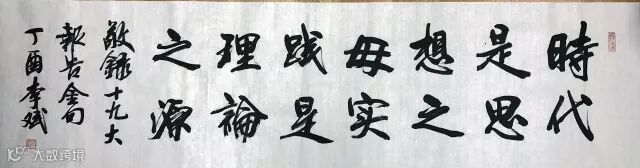 時代
是思
想之
母实
践是
理論
之源
敬録十九大
報告金句
丁酉李斌
大数跨境